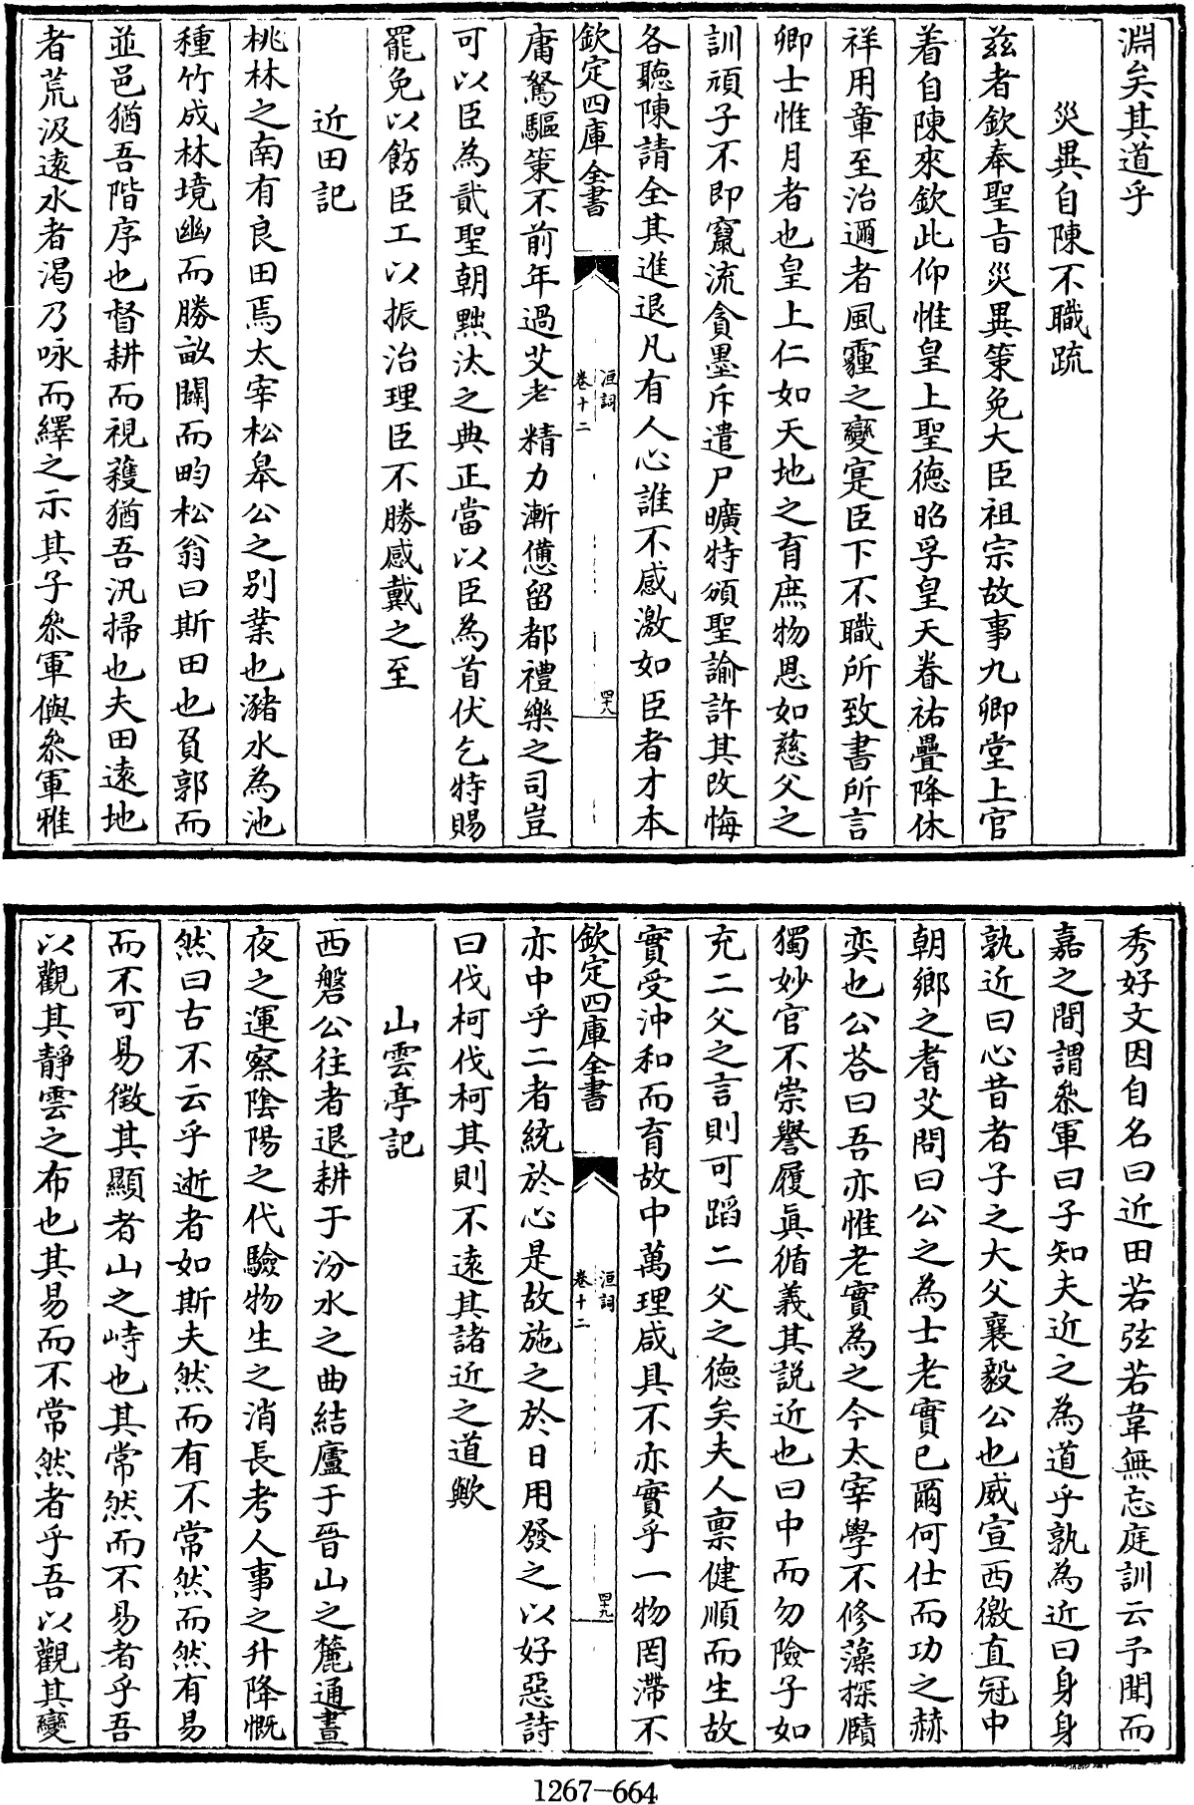 淵矣其道乎
災異自陳不職疏
兹者欽奉聖旨災異策免大臣祖宗故事九卿堂上官
着自陳來欽此仰惟皇上聖德昭孚皇天眷祐疊降休
祥用章至治邇者風霾之變寔臣下不職所致書所言
卿士惟月者也皇上仁如天地之育庶物恩如慈父之
訓頑子不即竄流貪墨斥遣尸曠特頒聖諭許其改悔
各聽陳請全其進退凡有人心誰不感激如臣者才本
欽定四庫全書
洹詞
卷十二
四十八
庸駑驅策不前年過艾老精力漸憊留都禮樂之司豈
可以臣為貳聖朝黜汰之典正當以臣為首伏乞特賜
罷免以飭臣工以振治理臣不勝感戴之至
近田記
桃林之南有良田焉太宰松皋公之別業也瀦水為池
種竹成林境幽而勝畝闢而畇松翁曰斯田也負郭而
並邑猶吾階序也督耕而視穫猶吾汛掃也夫田遠地
者荒汲遠水者渴乃咏而繹之示其子叅軍㒜叅軍雅
秀好文因自名曰近田若弦若韋無忘庭訓云予聞而
嘉之間謂叅軍曰子知夫近之為道乎孰為近曰身身
孰近曰心昔者子之大父襄毅公也威宣西徼直冠中
朝鄉之耆艾問曰公之為士老實已爾何仕而功之赫
奕也公荅曰吾亦惟老實為之今太宰學不修藻探賾
獨妙官不崇譽履眞循義其說近也曰中而勿險子如
充二父之言則可蹈二父之德矣夫人稟健順而生故
實受沖和而育故中萬理咸具不亦實乎一物罔滯不
欽定四庫全書
洹詞
卷十二
四十九
亦中乎二者統於心是故施之於日用發之以好惡詩
曰伐柯伐柯其則不遠其諸近之道歟
山雲亭記
西磐公往者退耕于汾水之曲結廬于晉山之麓通晝
夜之運察陰陽之代驗物生之消長考人事之升降慨
然曰古不云乎逝者如斯夫然而有不常然而然有易
而不可易徵其顯者山之峙也其常然而不易者乎吾
以觀其靜雲之布也其易而不常然者乎吾以觀其變
1267-664